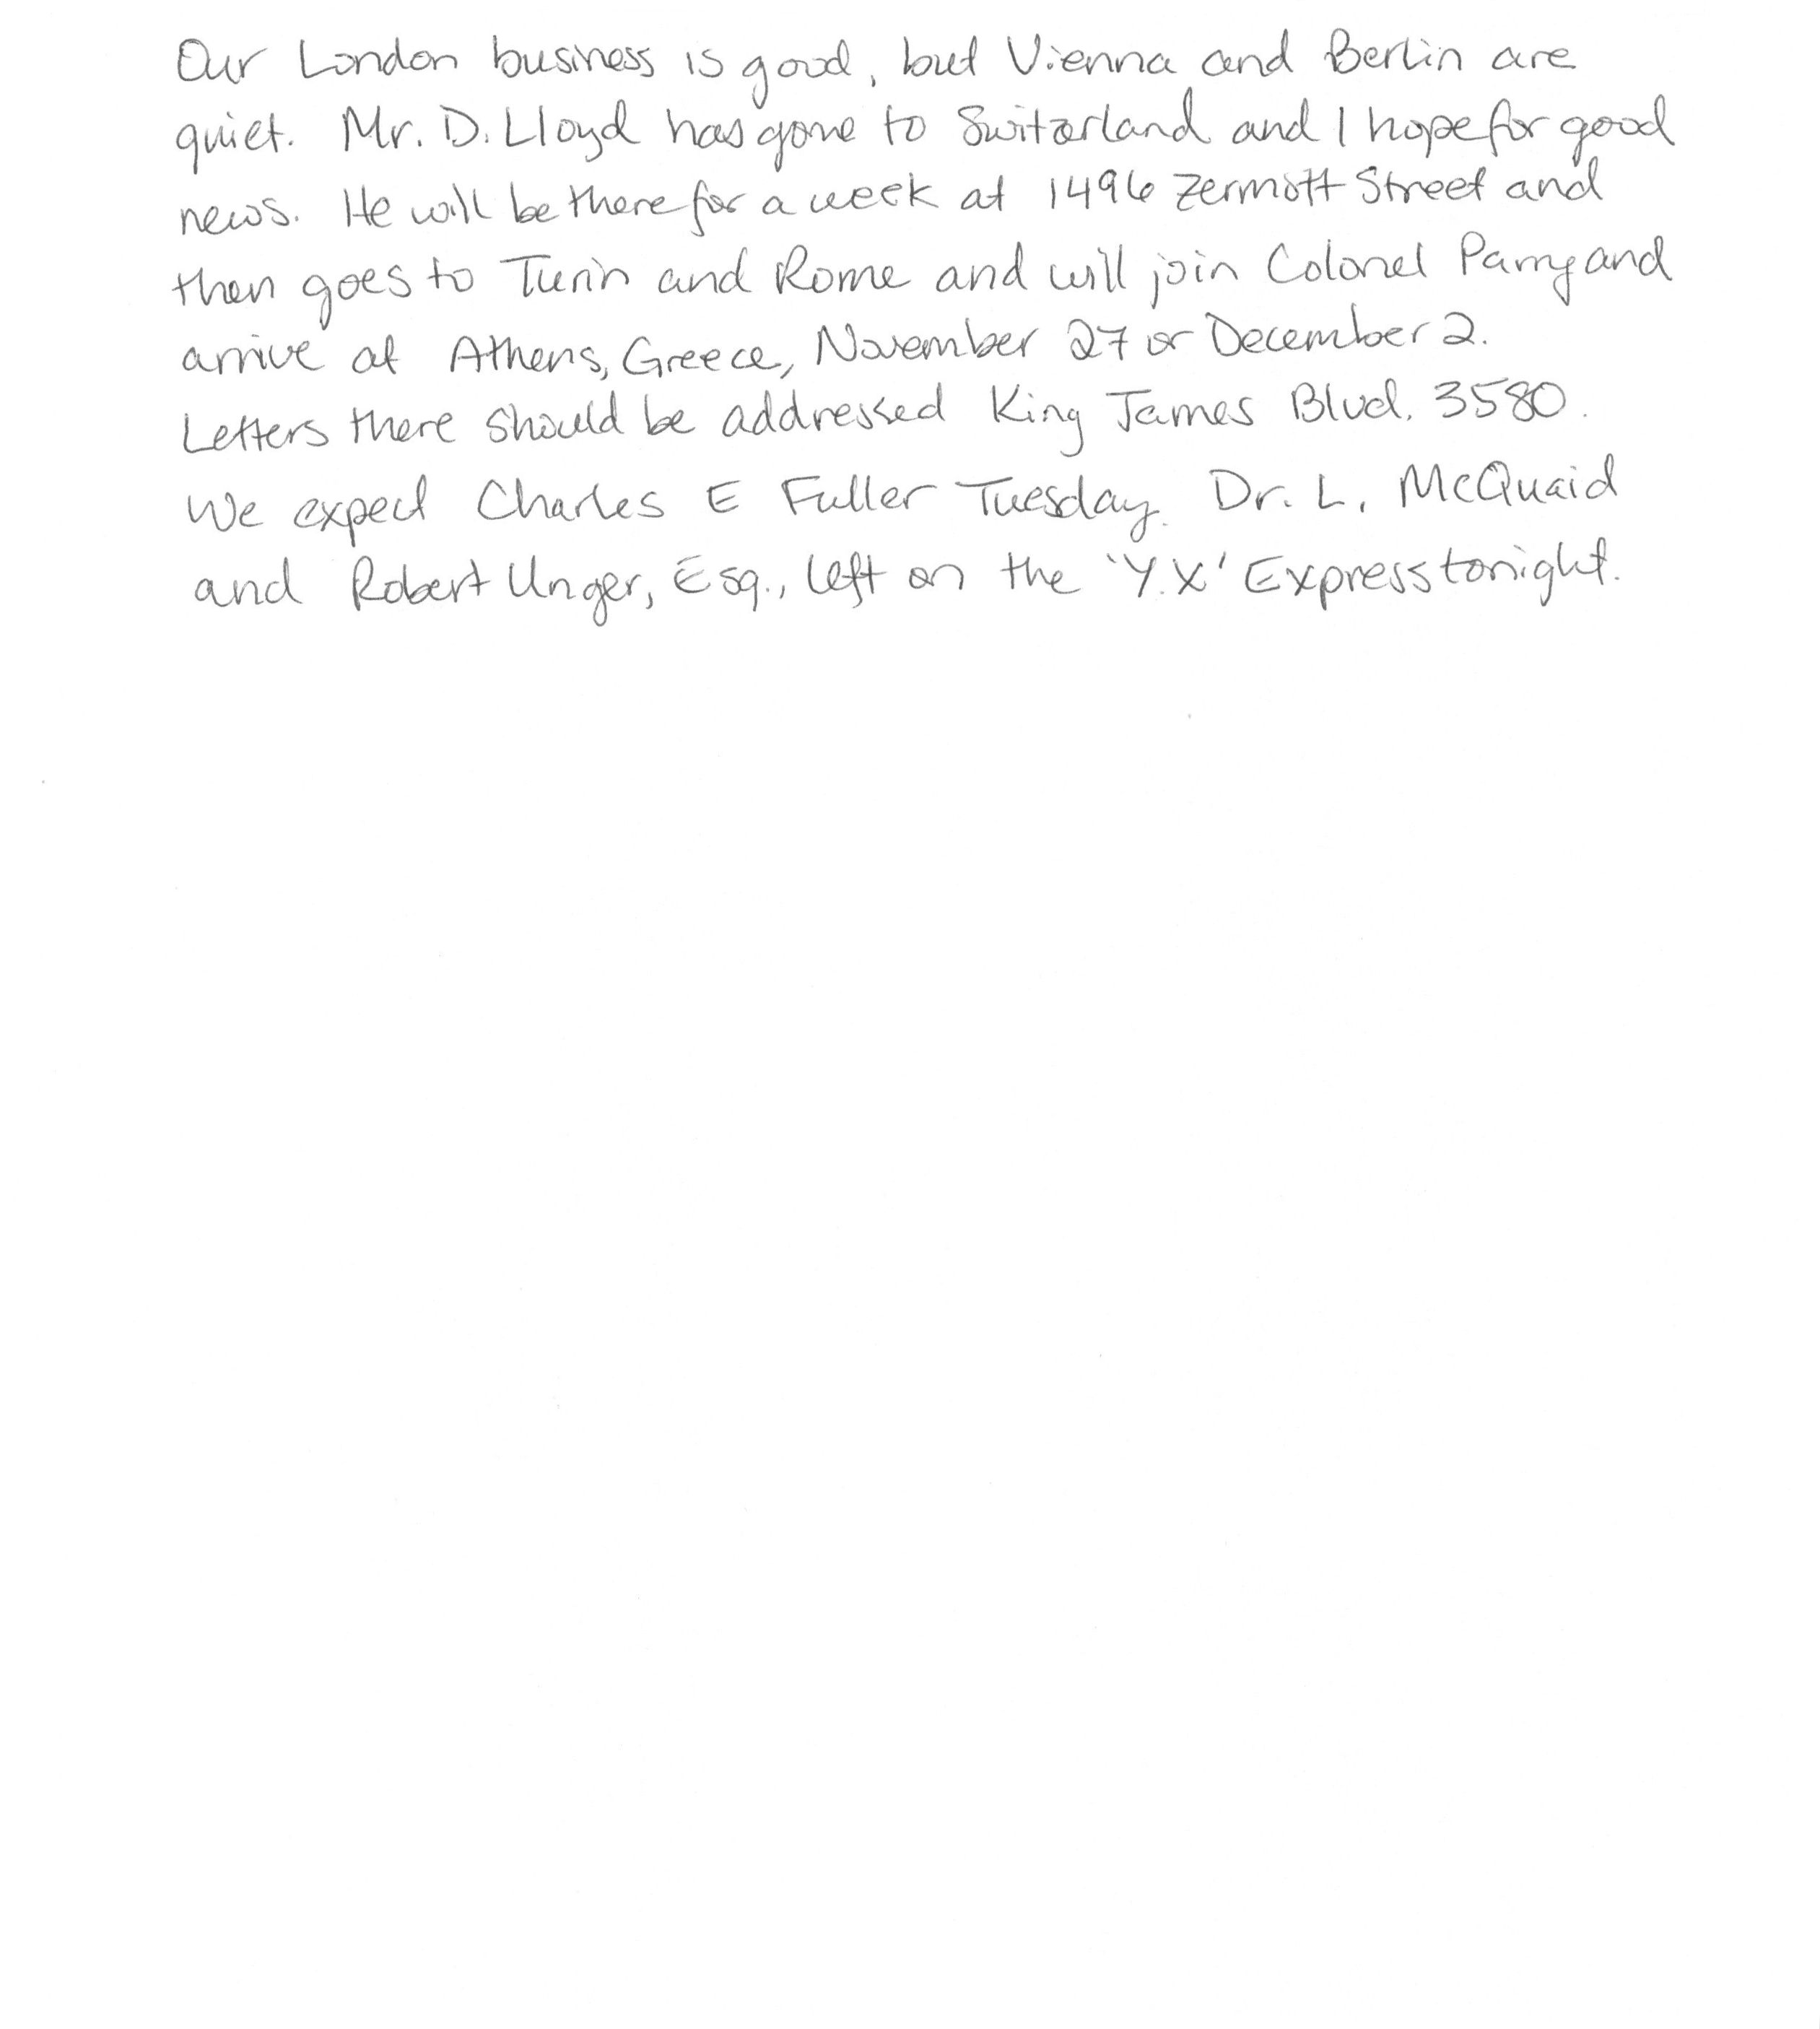 Our London business is good, but Vienna and Berlin are
quiet. Mr. D. Lloyd has gone to Switzerland and I hope for good
news. He will be there for a week at 1496 Zermott Street and
then goes to Turin and Rome and will join Colonel Parry and
arrive at Athens, Greece, November 27 or December 2.
Letters there should be addressed King James Blvd. 3580.
We expect Charles E Fuller Tuesday. Dr. L. McQuaid
and Robert Unger, Esq., left on the 'Y.X' Express tonight.